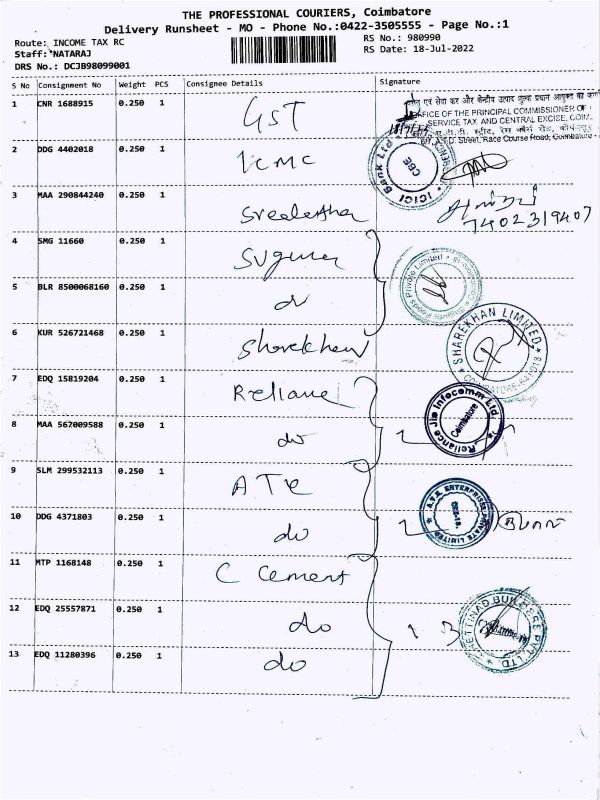 THE PROFESSIONAL COURIERS, Coimbatore
Delivery Runsheet - MO - Phone No.:0422-3505555 - Page No.:1
Route: INCOME TAX RC
RS No.: 980990
Staff: NATARAJ
RS Date: 18-Jul-2022
DRS No.: DCJB98099001
S No Consignment No Weight PCS Consignee Details Signature
1 CNR 1688915 0.250 1 GST
OFFICE OF THE PRINCIPAL COMMISSIONER OF
SERVICE TAX AND CENTRAL EXCISE, COIM
6/7, A.T.D. Street, Race Course Road, Coimbatore -
2 DDG 4402018 0.250 1
ICICI Bank Ltd
CBE
3 MAA 290844240 0.250 1
7402319407
4 SMG 11660 0.250 1 Suguna
5 BLR 8500068160 0.250 1 do
Foods Private Limited
6 KUR 526721468 0.250 1 Sharekhan
SHAREKHAN LIMITED
7 EDQ 15819204 0.250 1 Reliance
8 MAA 567009588 0.250 1 do
Reliance Jio Infocomm Ltd.
Coimbatore
9 SLM 299532113 0.250 1 ATR
10 DDG 4371803 0.250 1 do
ENTERPRISES PRIVATE LIMITED
CBE-18.
11 MTP 1168148 0.250 1 C Cement
12 EDQ 25557871 0.250 1 do
13 EDQ 11280396 0.250 1 do